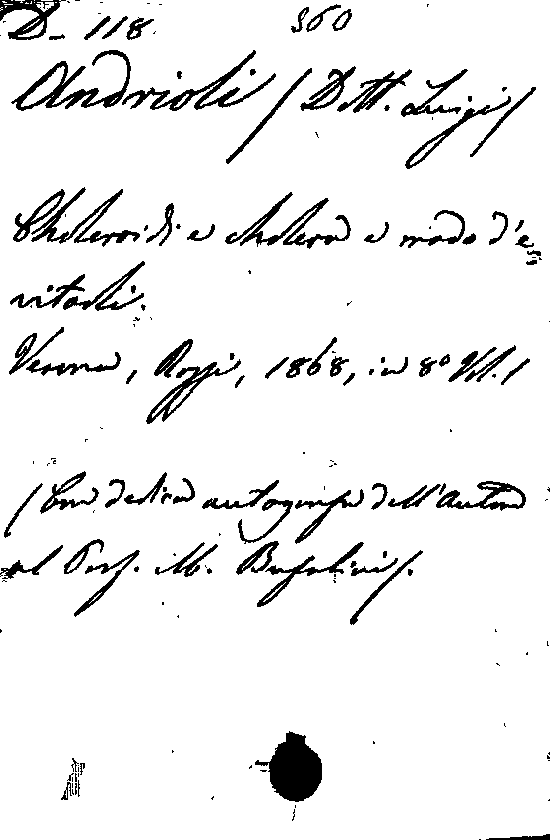 D- 118 360
Andrioli / Dott. Luigi /
Choleroidi e cholera e modo d'e
vitarli.
Verona, Rossi, 1868, in 8º Vol. 1
/ Con dedica autografa dell'Autore
al Prof. M. Bufalini /.